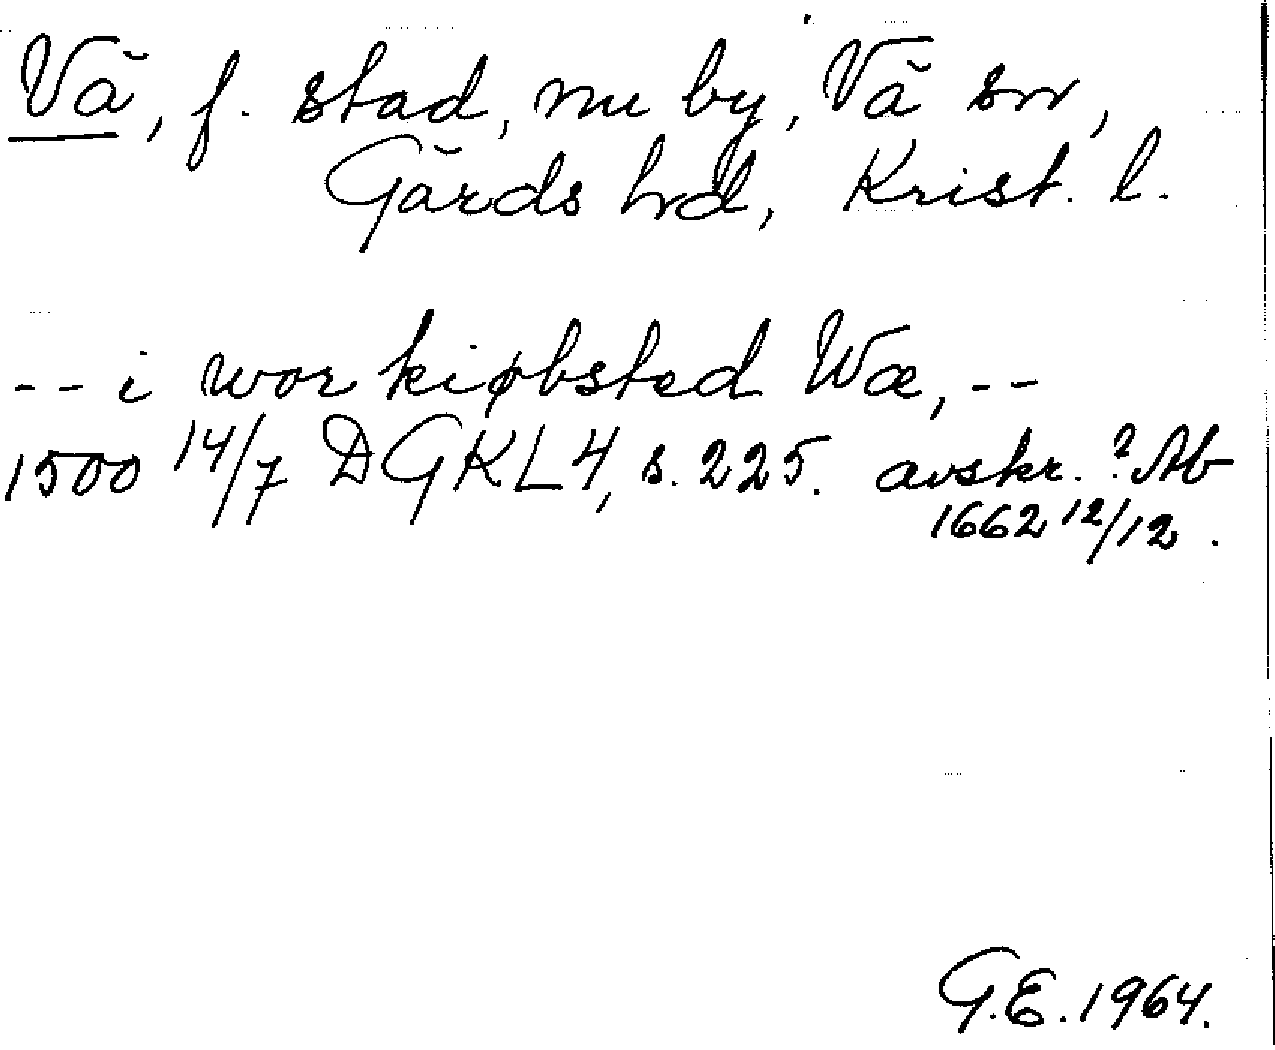 Vä, f. stad, nu by, Vä sn,
Gärds hd, Krist. l.
-- i wor kiøbsted Wæ, --
1500 14/7 DGKL4, s. 225. avskr. ? Ab
1662 12/12.
G.E. 1964.